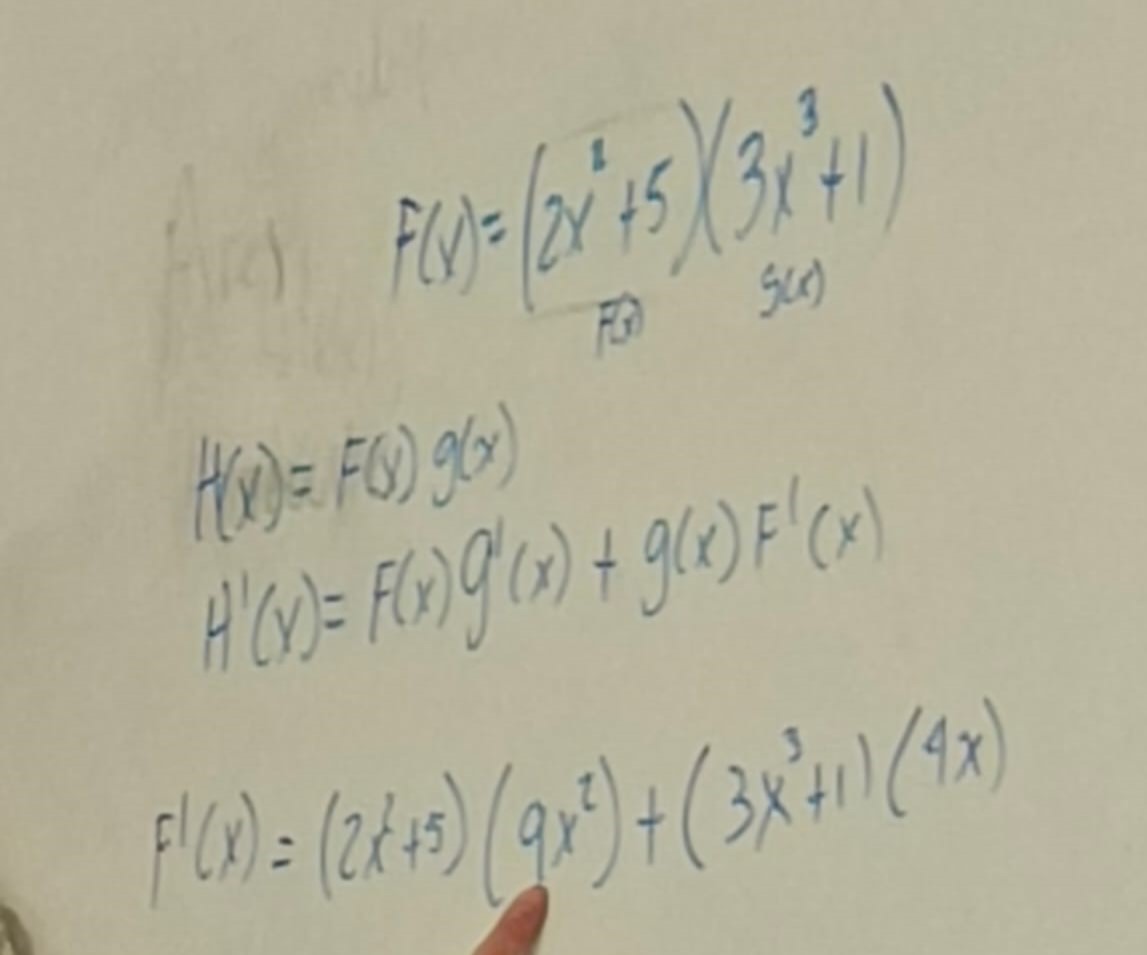 F(x)=(2x²+5)(3x³+1)
F(x) g(x)
H(x)= F(x) g(x)
H'(x)= F(x)g'(x) + g(x)F'(x)
F'(x)= (2x²+5)(9x²)+(3x³+1)(4x)